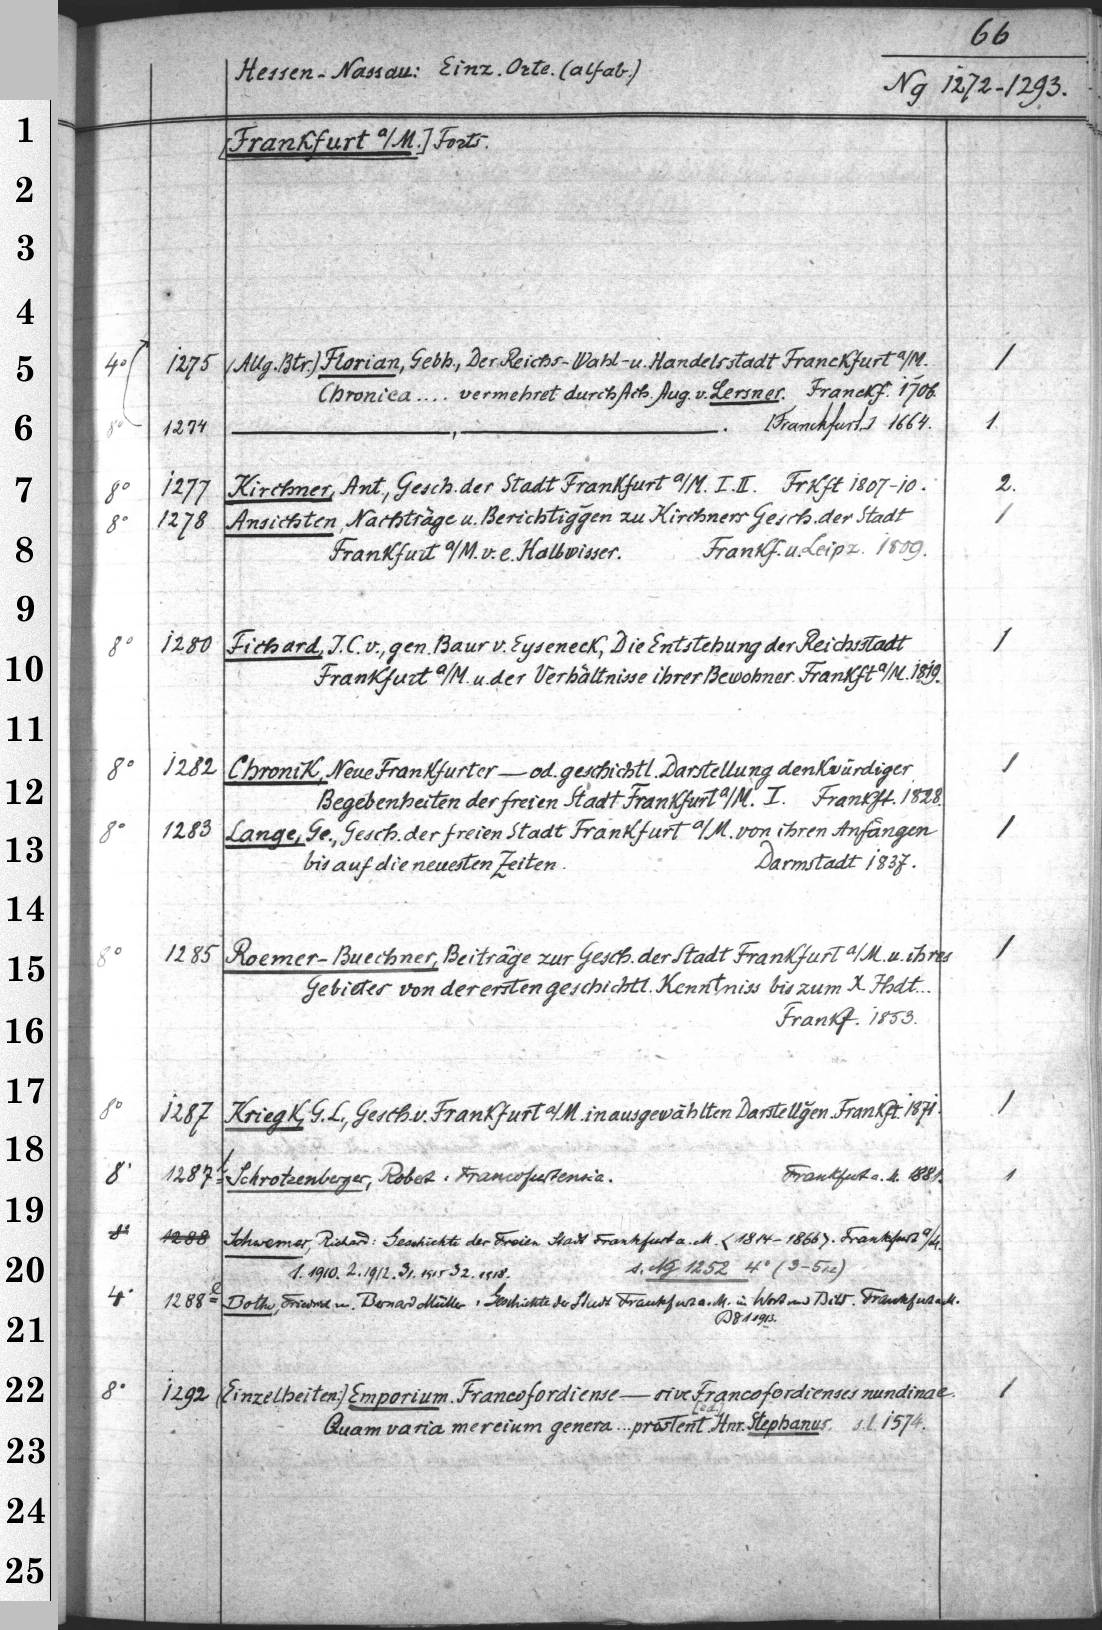 66
Hessen-Nassau: Einz. Orte. (alfab.)
Ng 1272-1293.
1
[Frankfurt a/M.] Forts.
2
3
4
5
4° 1275 (Allg. Btr.) Florian, Gebh., Der Reichs-Wahl-u. Handelsstadt Franckfurt a/M. 1
Chronica .... vermehret durch Ach. Aug. v. Lersner. Franckf. 1706.
6
8° 1274 ——, ——. [Franckfurt.] 1664. 1
7
8° 1277 Kirchner, Ant., Gesch. der Stadt Frankfurt a/M. I. II. Frkft 1807-10. 2.
8° 1278 Ansichten, Nachträge u. Berichtigg̅en zu Kirchners Gesch. der Stadt 1
8
Frankfurt a/M. v. e. Halbwisser. Frankf. u. Leipz. 1809.
9
8° 1280 Fichard, J. C. v., gen. Baur v. Eyseneck, Die Entstehung der Reichsstadt 1
10
Frankfurt a/M. u. der Verhältnisse ihrer Bewohner. Frankft a/M. 1819.
11
8° 1282 Chronik, Neue Frankfurter — od. geschichtl. Darstellung denkwürdiger 1
12
Begebenheiten der freien Stadt Frankfurt a/M. I. Frankft. 1828.
8° 1283 Lange, Ge., Gesch. der freien Stadt Frankfurt a/M. von ihren Anfängen 1
13
bis auf die neuesten Zeiten. Darmstadt 1837.
14
8° 1285 Roemer-Buechner, Beiträge zur Gesch. der Stadt Frankfurt a/M. u. ihres 1
15
Gebietes von der ersten geschichtl. Kenntniss bis zum X. Jhdt...
16
Frankf. 1853.
17
8° 1287 Kriegk, G. L., Gesch. v. Frankfurt a/M. in ausgewählten Darstellg̅en. Frankft. 1871. 1
18
8° 1287 Schrotzenberger, Robert. Francofurtensia. Frankfurt a. M. 1881. 1
19
8° 1288 Schwemer, Richard: Geschichte der Freien Stadt Frankfurt a. M. <1814-1866>. Frankfurt a/M.
20
1. 1910. 2. 1912. 3,1. 1915 3,2. 1918. s. Ng 1252 4° (3-5)
4° 1288 Bothe, Friedrich u. Bernard Müller. Geschichte der Stadt Frankfurt a. M. in Wort und Bild. Frankfurt a. M.
21
1913.
22
8° 1292 (Einzelheiten:) Emporium Francofordiense — sive Francofordienses nundinae. 1
Quam varia mercium genera ... prostent [ed.] Hnr. Stephanus. s. l. 1574.
23
24
25